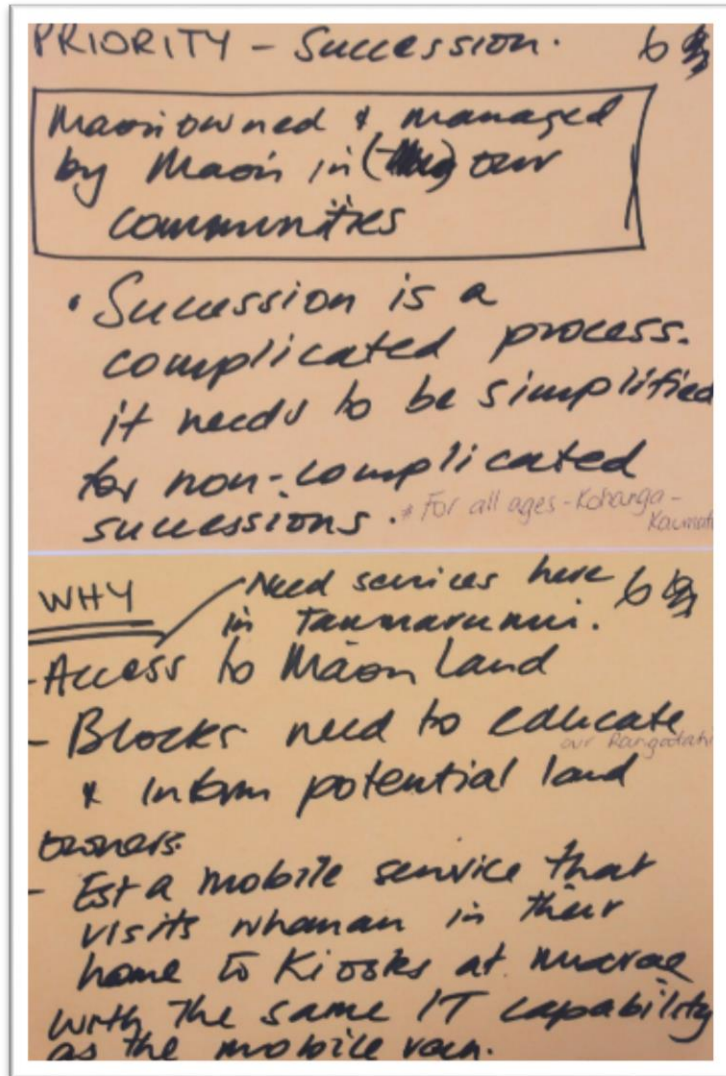 PRIORITY - Succession. 6
Maori owned & managed
by Maori in our
communities
• Succession is a
complicated process.
it needs to be simplified
for non-complicated
successions. * For all ages - Kohanga -
Kaumat
WHY
Need services here 6
in Taumarunui.
- Access to Māori Land
- Blocks need to educate
our Rangatahi
& inform potential land
owners.
- Est a mobile service that
visits whanau in their
home to Kiosks at marae
with the same IT capability
as the mobile van.